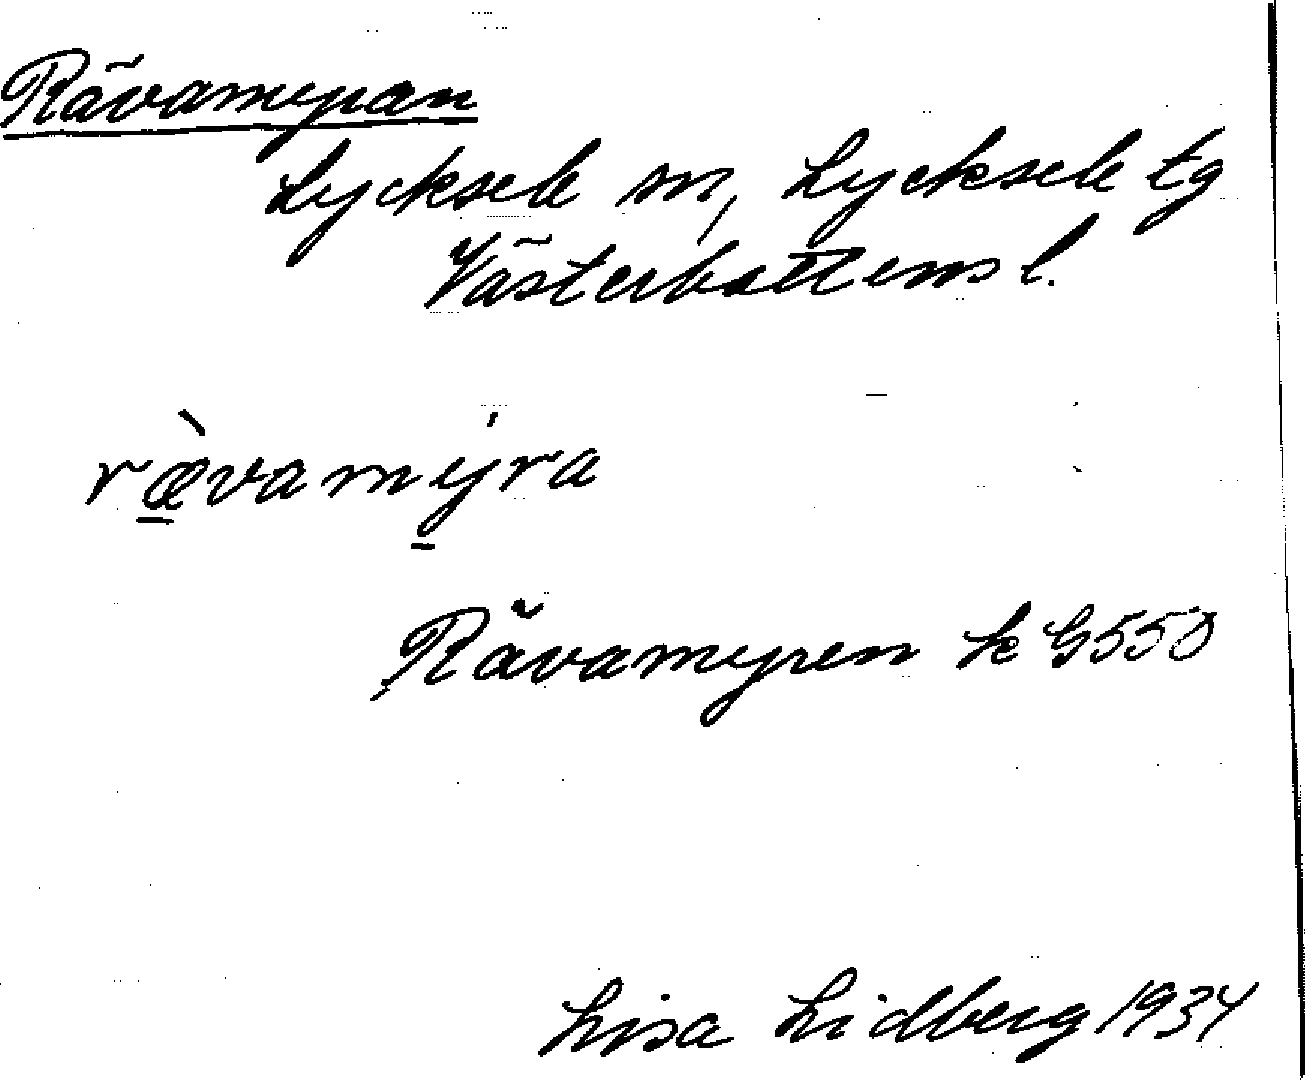 Rävamyran
Lycksele sn, Lycksele tg
Västerbottens l.
ræ̀vamýra
Rävamyren k G550
Lisa Lidberg 1934